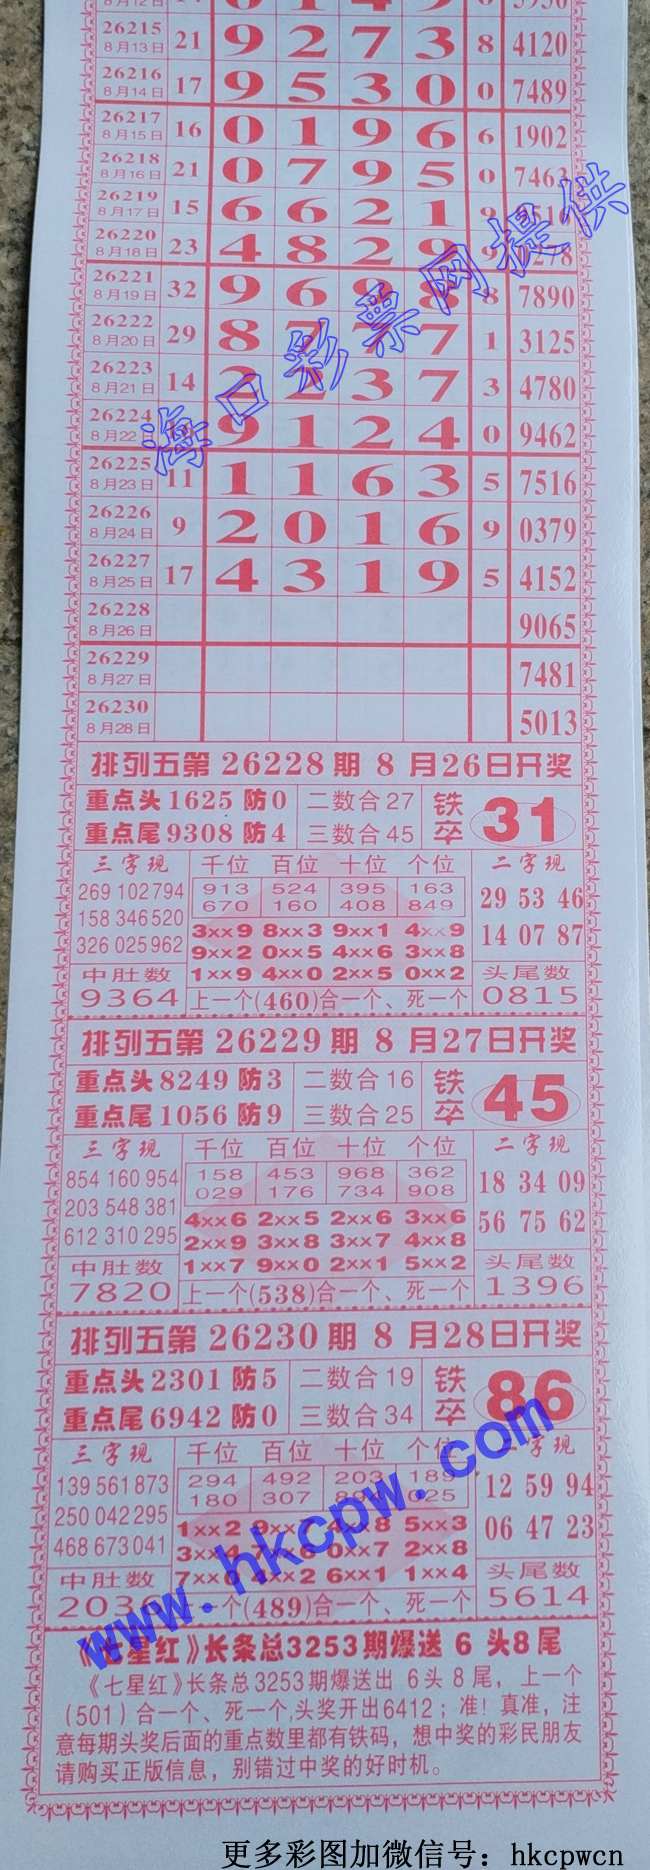 26215 21 9 2 7 3 8 4120
8月13日
26216 17 9 5 3 0 0 7489
8月14日
26217 16 0 1 9 6 6 1902
8月15日
26218 21 0 7 9 5 0 7463
8月16日
26219 15 6 6 2 1 9
8月17日
26220 23 4 8 2 9 9
8月18日
26221 32 9 6 9 8 8 7890
8月19日
26222 29 8 7 7 7 1 3125
8月20日
26223 14 2 2 3 7 3 4780
8月21日
26224 9 1 2 4 0 9462
8月22
26225 11 1 1 6 3 5 7516
8月23日
26226 9 2 0 1 6 9 0379
8月24日
26227 17 4 3 1 9 5 4152
8月25日
26228 9065
8月26日
26229 7481
8月27日
26230 5013
8月28日
海口彩票网提供
排列五第26228期 8月26日开奖
重点头1625防0 二数合27 铁卒 31
重点尾9308防4 三数合45
三字现 千位 百位 十位 个位 二字现
269 102 794 913 524 395 163 29 53 46
158 346 520 670 160 408 849 14 07 87
326 025 962 3××9 8××3 9××1 4××9
9××2 0××5 4××6 3××8
中肚数 1××9 4××0 2××5 0××2 头尾数
9364 上一个(460)合一个、死一个 0815
排列五第26229期 8月27日开奖
重点头8249防3 二数合16 铁卒 45
重点尾1056防9 三数合25
三字现 千位 百位 十位 个位 二字现
854 160 954 158 453 968 362 18 34 09
203 548 381 029 176 734 908 56 75 62
612 310 295 4××6 2××5 2××6 3××6
2××9 3××8 3××7 4××8
中肚数 1××7 9××0 2××1 5××2 头尾数
7820 上一个(538)合一个、死一个 1396
排列五第26230期 8月28日开奖
重点头2301防5 二数合19 铁卒 86
重点尾6942防0 三数合34
三字现 千位 百位 十位 个位 二字现
139 561 873 294 492 203 189 12 59 94
250 042 295 180 307 025 06 47 23
468 673 041 1××2 5××3
0××7 2××8
中肚数 6××1 1××4 头尾数
一个(489)合一个、死一个 5614
www.hkcpw.com
《七星红》长条总3253期爆送 6 头8尾
《七星红》长条总3253期爆送出 6头8尾，上一个
(501)合一个、死一个,头奖开出6412；准！真准，注
意每期头奖后面的重点数里都有铁码，想中奖的彩民朋友
请购买正版信息，别错过中奖的好时机。
更多彩图加微信号：hkcpwcn